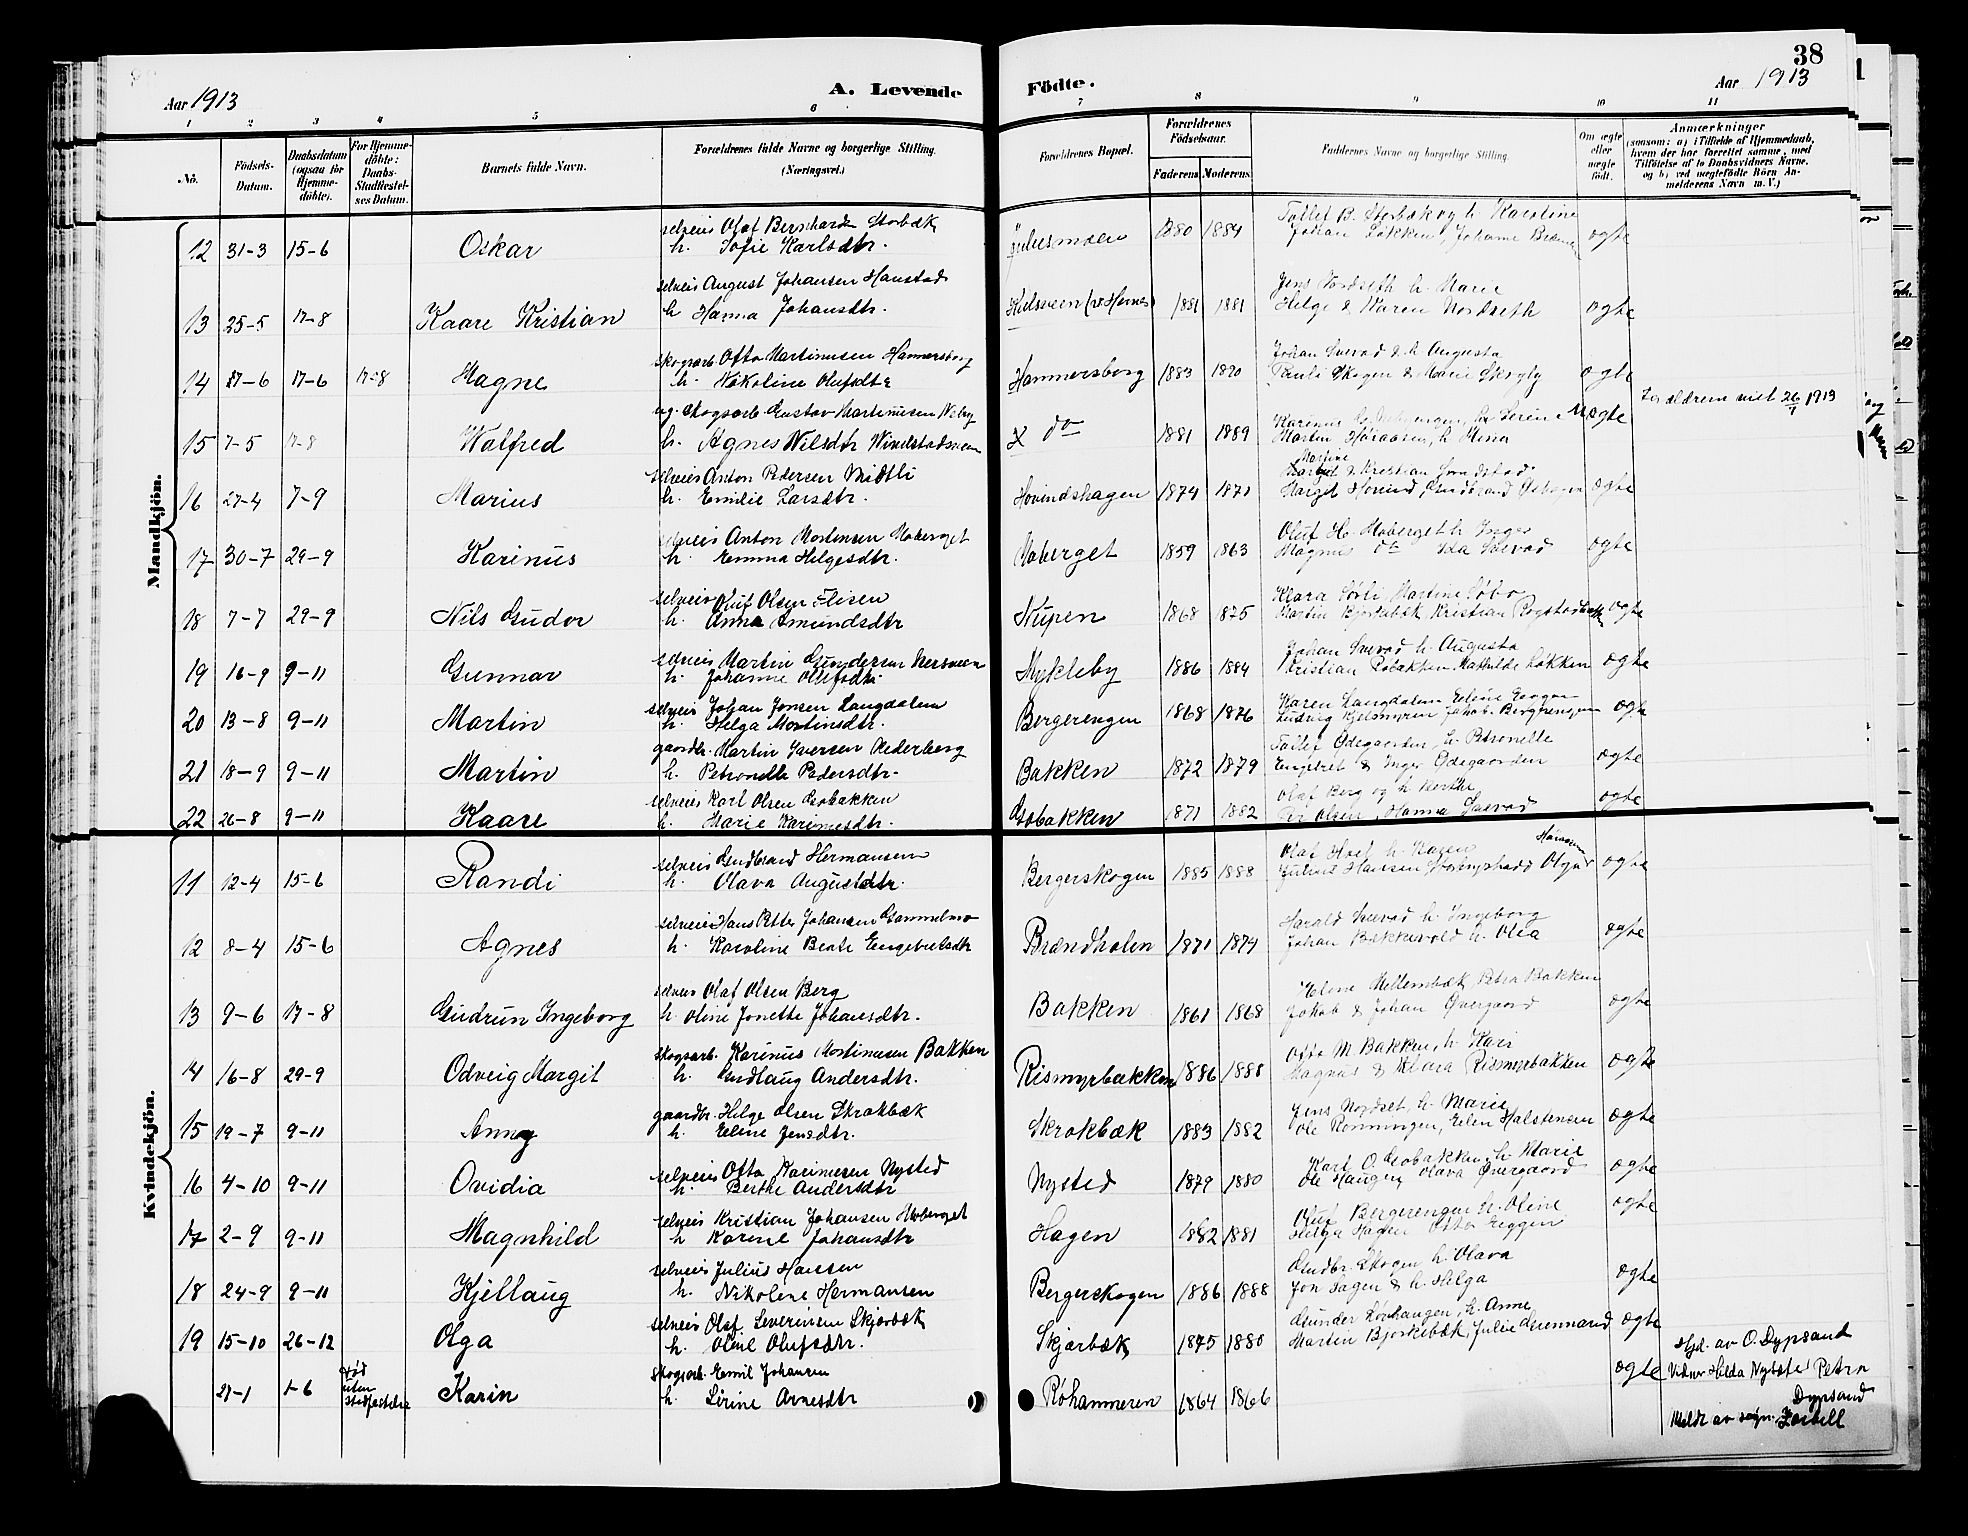 38
Aar 1913
A. Levende
Födte.
Aar 1913
1 2 3 4 5 6 7 8 9 10 11
No.
Födsels-Datum.
Daabsdatum (ogsaa for Hjemme-döbte).
For Hjemme-döbte: Daabs-Stadfæstel-ses Datum.
Barnets fulde Navn.
Forældrenes fulde Navne og borgerlige Stilling. (Næringsvei.)
Forældrenes Bopæl.
Forældrenes Födselsaar.
Faderens Moderens
Faddernes Navne og borgerlige Stilling.
Om ægte eller uægte födt.
Anmærkninger
(saasom: a) i Tilfælde af Hjemmedaab, hvem der har forrettet samme, med Tilföielse af to Daabsvidners Navne, og b) ved uægtefödte Börn Anmelderens Navn m. V.)
Mandkjön.
12 31-3 15-6 Oskar selveis Olaf Bernhard Storbæk
h. Sofie Karlsdtr. Juliusmoen 1880 1884 Tollef B. Storbæk og h. Karoline
Johan Løkken, Johanne ægte
13 25-5 17-8 Kaare Kristian selveis August Johansen Haustad
h Hanna Johansdtr. 1881 1881 Jens Nordseth h. Marie
Helge & Karen Nordseth ægte
14 27-6 17-6 17-8 Magne skogsarb. Otto Martinusen Hammersborg
h. Nikoline Olufsdtr Hammersborg 1883 1890 Johan Sæved & h Augusta
Pauli Skogen & Marie ægte
15 7-5 17-8 Walfred ug. Skogsarb. Gustav Martinusen
h. Agnes Nilsdtr do 1881 1889 Martin h. ægte Forældrene viet 26/1 1913
16 27-4 7-9 Marius selveis Anton Pedersen Midtli
h. Emilie Larsdtr. Hovindshagen 1874 1871 Martine & Kristian
Margit Hovind, ægte
17 30-7 29-9 Karinus selveis Anton Mortensen Moberget
h. Emma Helgesdtr. Moberget 1859 1863 Oluf H. Moberget h Inger
Magnus do Ida Sæved ægte
18 7-7 29-9 Nils Gudor selveis Oluf Olsen Flisen
h. Anna Amundsdtr Nupen 1868 1875 Klara Sørli, Martine
Martin Bjørkebæk, Kristian ægte
19 16-9 9-11 Gunnar selveis Martin Gundersen Nersveen
h. Johanne Olufsdtr. Mykleby 1886 1884 Johan Sæved h. Augusta
Kristian Robakken, Mathilde Løkken ægte
20 13-8 9-11 Martin selveis Johan Jonsen Langdalen
h. Helga Mortinsdtr. Bergerengen 1868 1876 Karen Langdalen Eline
Ludvig Kjelsmyren Jakob Bergerengen ægte
21 18-9 9-11 Martin gaardbr. Martin Iversen Nederberg
h. Petronelle Pedersdtr. Bakken 1872 1879 Tollef Ødegaarden, h. Petronelle
Engebret & Inger Ødegaarden ægte
22 26-8 9-11 Kaare selveis Karl Olsen Gsobakken
h. Marie Karinusdtr. Gsobakken 1871 1882 Olaf Berg og h Berthe
Per Olsen, Hanna Sæved ægte
Kvindekjön.
11 12-4 15-6 Randi selveis Gudbrand Hermansen
h. Olava Augustdtr. Bergerskogen 1885 1888 Olaf Hoel h. Karen
Julius Hansen, Olga ægte
12 8-4 15-6 Agnes selveis Hans Petter Johansen Gammelmo
h. Karoline Beate Engebretsdtr Brændholen 1871 1874 Harald Sæved h. Ingeborg
Johan Bakkevold h. Olea ægte
13 9-6 17-8 Gudrun Ingeborg selveis Olaf Olsen Berg
h. Oline Jonette Johansdtr. Bakken 1861 1868 Eline Mellembæk, Petra Bakken
Jakob & Johan Øvergaard ægte
14 16-8 29-9 Odveig Margit skogsarb. Karinus Mortinusen Bakken
h. Gudlaug Andersdtr. Rismyrbakken 1886 1888 Otto M. Bakken, h. Kari
Magnus & Klara Rismyrbakken ægte
15 19-7 9-11 Anny gaardbr. Helge Olsen Skrokbæk
h. Eline Jensdtr. Skrokbæk 1883 1882 Jens Nordset, h. Marie
Ole Rønningen, Elen Halstensen ægte
16 4-10 9-11 Ovidia selveis Otto Karinusen Nysted
h. Berthe Andersdtr Nysted 1879 1880 Karl O. Gsobakken, h. Marie
Ole Haugen, Olava Øvergaard ægte
17 2-9 9-11 Magnhild selveis Kristian Johansen Moberget
h Karine Johansdtr Hagen 1882 1881 Oluf Bergerengen h. Oline
Helga Hagen Otto Eggen ægte
18 24-9 9-11 Kjellaug selveis Julius Hansen
h. Nikolene Hermansen Bergerskogen 1886 1888 Gudbr. Skogen h. Olava
Jon Hagen & h. Helga ægte
19 15-10 26-12 Olga selveis Olaf Severinsen Skjærbæk
h. Oline Olufsdtr. Skjærbæk 1875 1880 Gunder h. Anne
Martin Bjørkebæk, Julie ægte
21-1 1-6 død uten stadfæstelse Karin Skogsarb. Emil Johansen
h. Sirine Arnesdtr Røhammeren 1864 1866 ægte Hjd. av O. Dypsand
Vidner Helda Petra Dypsand
Meldt av sogn.